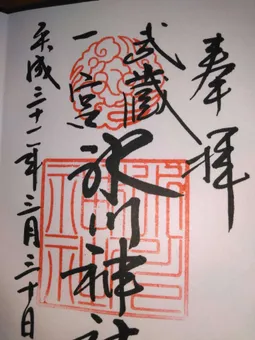 奉拝
武蔵
一宮
氷川神社
平成三十一年三月三十日